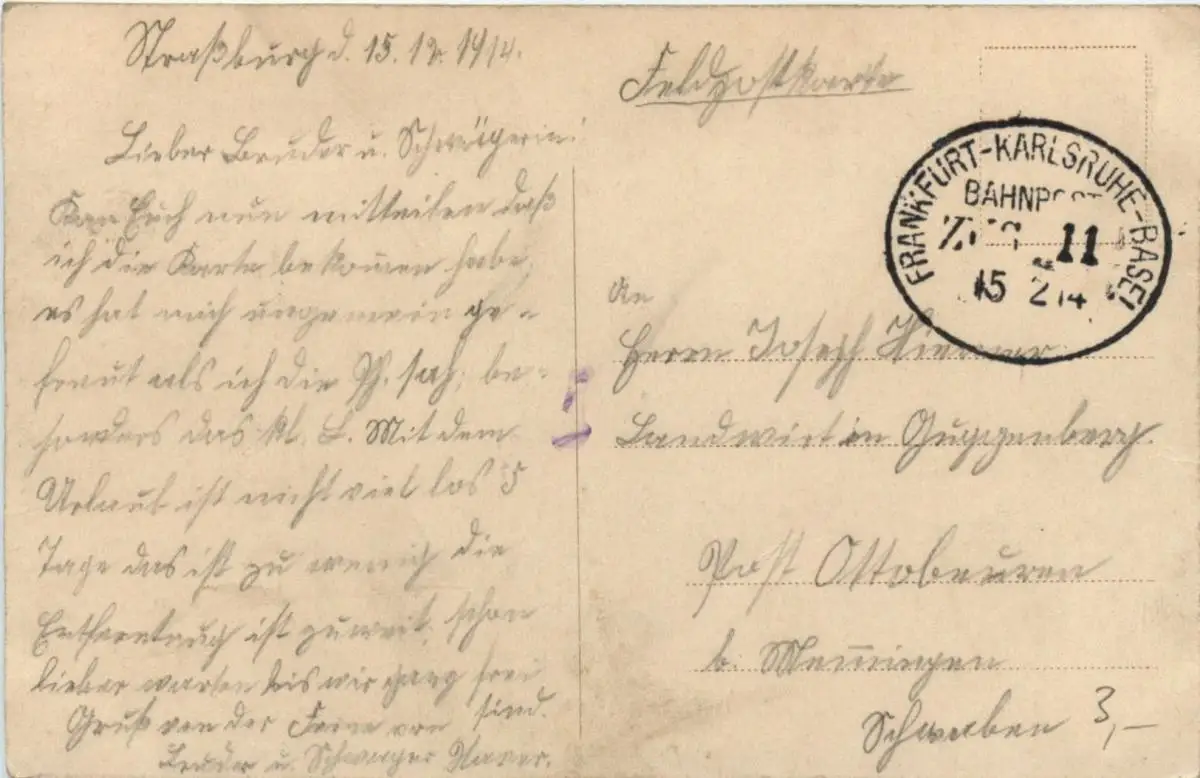 Straßburg d. 15. 12. 1914.
Lieber Bruder u. Schwägerin!
Kan Euch nun mitteilen daß
ich die Karte bekom̄en habe,
es hat mich ungemein ge-
freut als ich die Ph. sah, be-
sonders das kl. L. Mit dem
Urlaub ist nicht viel los 5
Tage das ist zu wenig die
Entfernung ist zu weit, schon
lieber warten bis wir ganz frei
sind.
Gruß von der Ferne von
Bruder u. Schwager Xaver.
Feldpostkarte
FRANKFURT-KARLSRUHE-BASEL
BAHNPOST
ZUG 11
15 12 14
An
Herrn Joseph
Landwirt in Guggenberg.
Post Ottobeuren
b. Mem̄ingen
Schwaben 3,-